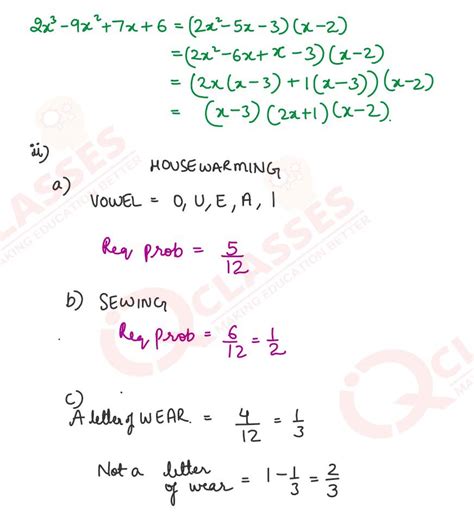 2x³-9x²+7x+6 = (2x²-5x-3)(x-2)
=(2x²-6x+x-3)(x-2)
= (2x(x-3)+1(x-3))(x-2)
= (x-3)(2x+1)(x-2).
ii)
HOUSEWARMING
a)
VOWEL = O, U, E, A, I
Req prob = 5/12
b) SEWING
Req prob = 6/12 = 1/2
c)
A letter of WEAR. = 4/12 = 1/3
Not a letter of wear = 1-1/3 = 2/3
CLASSES
MAKING EDUCATION BETTER
CLASSES
MAKING EDUCATION BETTER